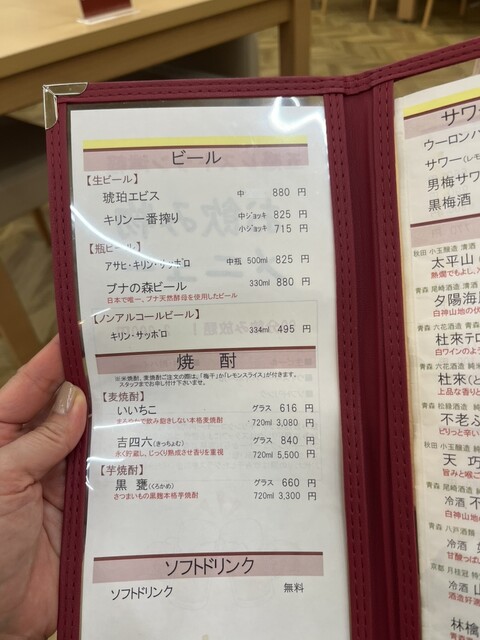 ビール
【生ビール】
琥珀ヱビス 中 880 円
キリン一番搾り 中ジョッキ 825 円
小ジョッキ 715 円
【瓶ビール】
アサヒ・キリン・サッポロ 中瓶 500ml 825 円
ブナの森ビール 330ml 880 円
日本で唯一、ブナ天然酵母を使用したビール
【ノンアルコールビール】
キリン・サッポロ 334ml 495 円
焼 酎
※米焼酎、麦焼酎ご注文の際は、「梅干」か「レモンスライス」が付きます。
スタッフまでお申し付け下さいませ。
【麦焼酎】
いいちこ グラス 616 円
まろやかで飲み飽きしない本格麦焼酎 720ml 3,080 円
吉四六(きっちょむ) グラス 840 円
永く貯蔵し、じっくり熟成させ香りを重視 720ml 5,500 円
【芋焼酎】
黒 甕(くろかめ) グラス 660 円
さつまいもの黒麹本格芋焼酎 720ml 3,300 円
ソフトドリンク
ソフトドリンク 無料
サワー
ウーロンハ
サワー(レモ
男梅サワ
黒梅酒
秋田 小玉醸造 清酒
太平山
熱燗でもよし、
青森 尾崎酒造 清酒
夕陽海岸
白神山地の伏
青森 六花酒造 青森
杜來テロ
白ワインのよう
青森 六花酒造 純米
杜來(と
上品な香りと
青森 松緑酒造 純米
不老ふ
ピリっと辛い
秋田 小玉醸造 純
天 巧
旨みと喉ご
青森 尾崎酒造
冷酒 不
白神山地の
青森 八戸酒類
冷酒
甘酸っぱ
京都 月桂冠 特
冷酒 山
酒造好適
林檎